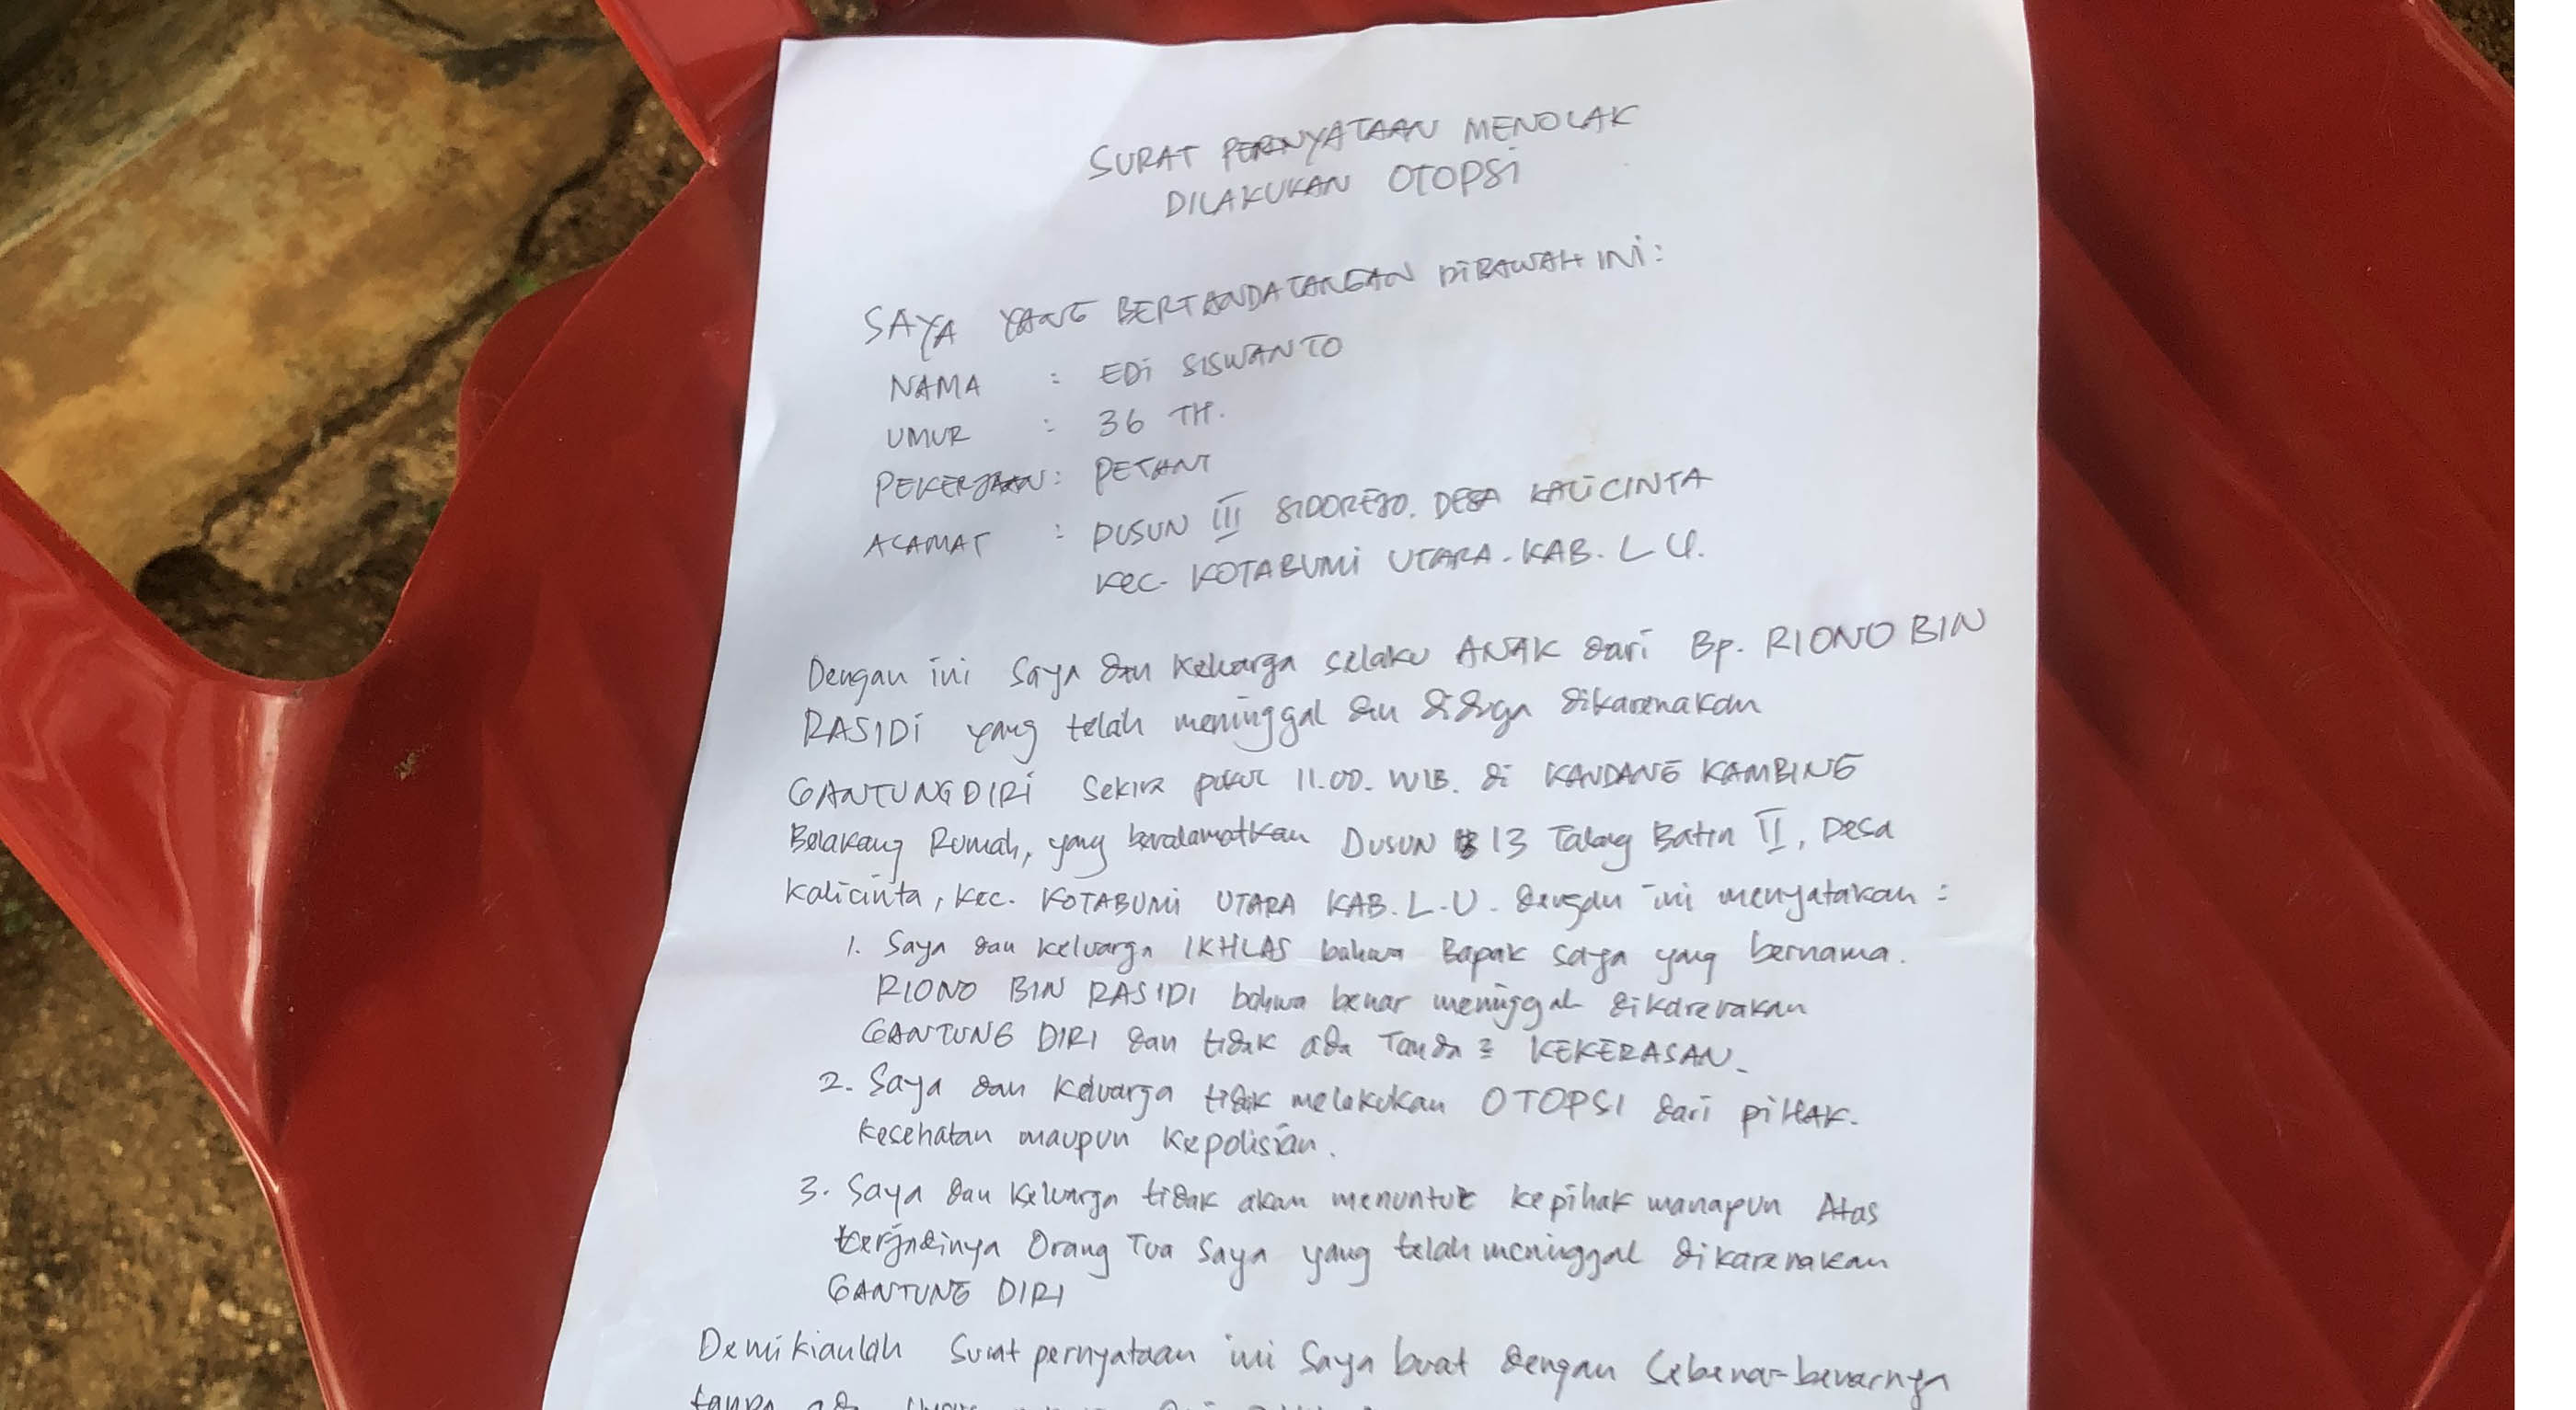 SURAT PERNYATAAN MENOLAK
DILAKUKAN OTOPSI
SAYA YANG BERTANDATANGAN DIBAWAH INI:
NAMA : EDI SISWANTO
UMUR : 36 TH.
PEKERJAAN : PETANI
ALAMAT : DUSUN III SIDOREJO. DESA KALICINTA
KEC. KOTABUMI UTARA. KAB. L U.
Dengan ini Saya dan Keluarga selaku ANAK dari Bp. RIONO BIN
RASIDI yang telah meninggal dan diduga dikarenakan
GANTUNG DIRI Sekira pukul 11.00. WIB. di KANDANG KAMBING
Belakang Rumah, yang beralamatkan DUSUN 13 Talang Batin II, Desa
Kalicinta, Kec. KOTABUMI UTARA KAB. L.U. dengan ini menyatakan :
1. Saya dan Keluarga IKHLAS bahwa Bapak saya yang bernama.
RIONO BIN RASIDI bahwa benar meninggal dikarenakan
GANTUNG DIRI dan tidak ada Tanda 2 KEKERASAN.
2. Saya dan Keluarga tidak melakukan OTOPSI dari pihak.
Kesehatan maupun Kepolisian.
3. Saya dan Keluarga tidak akan menuntut kepihak manapun Atas
terjadinya Orang Tua Saya yang telah meninggal dikarenakan
GANTUNG DIRI
Demikianlah Surat pernyataan ini Saya buat dengan Sebenar-benarnya